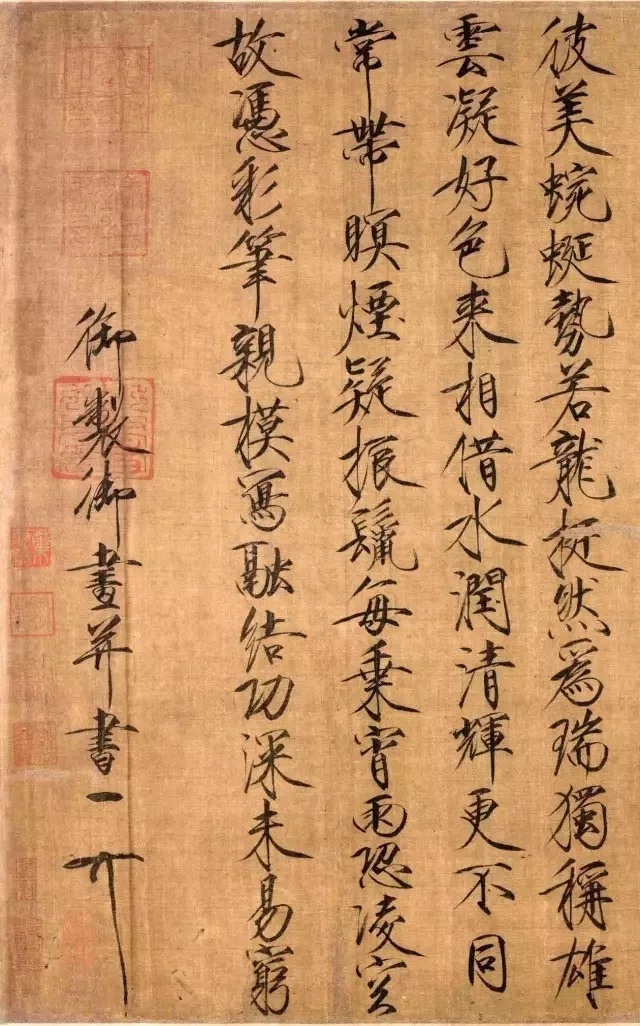 彼美蜿蜒勢若龍挺然為瑞獨稱雄
雲凝好色来相借水潤清輝更不同
常帶瞑煙疑振鬣每乗宵雨恐凌空
故憑彩筆親模寫融結功深未易窮
御製御畫并書